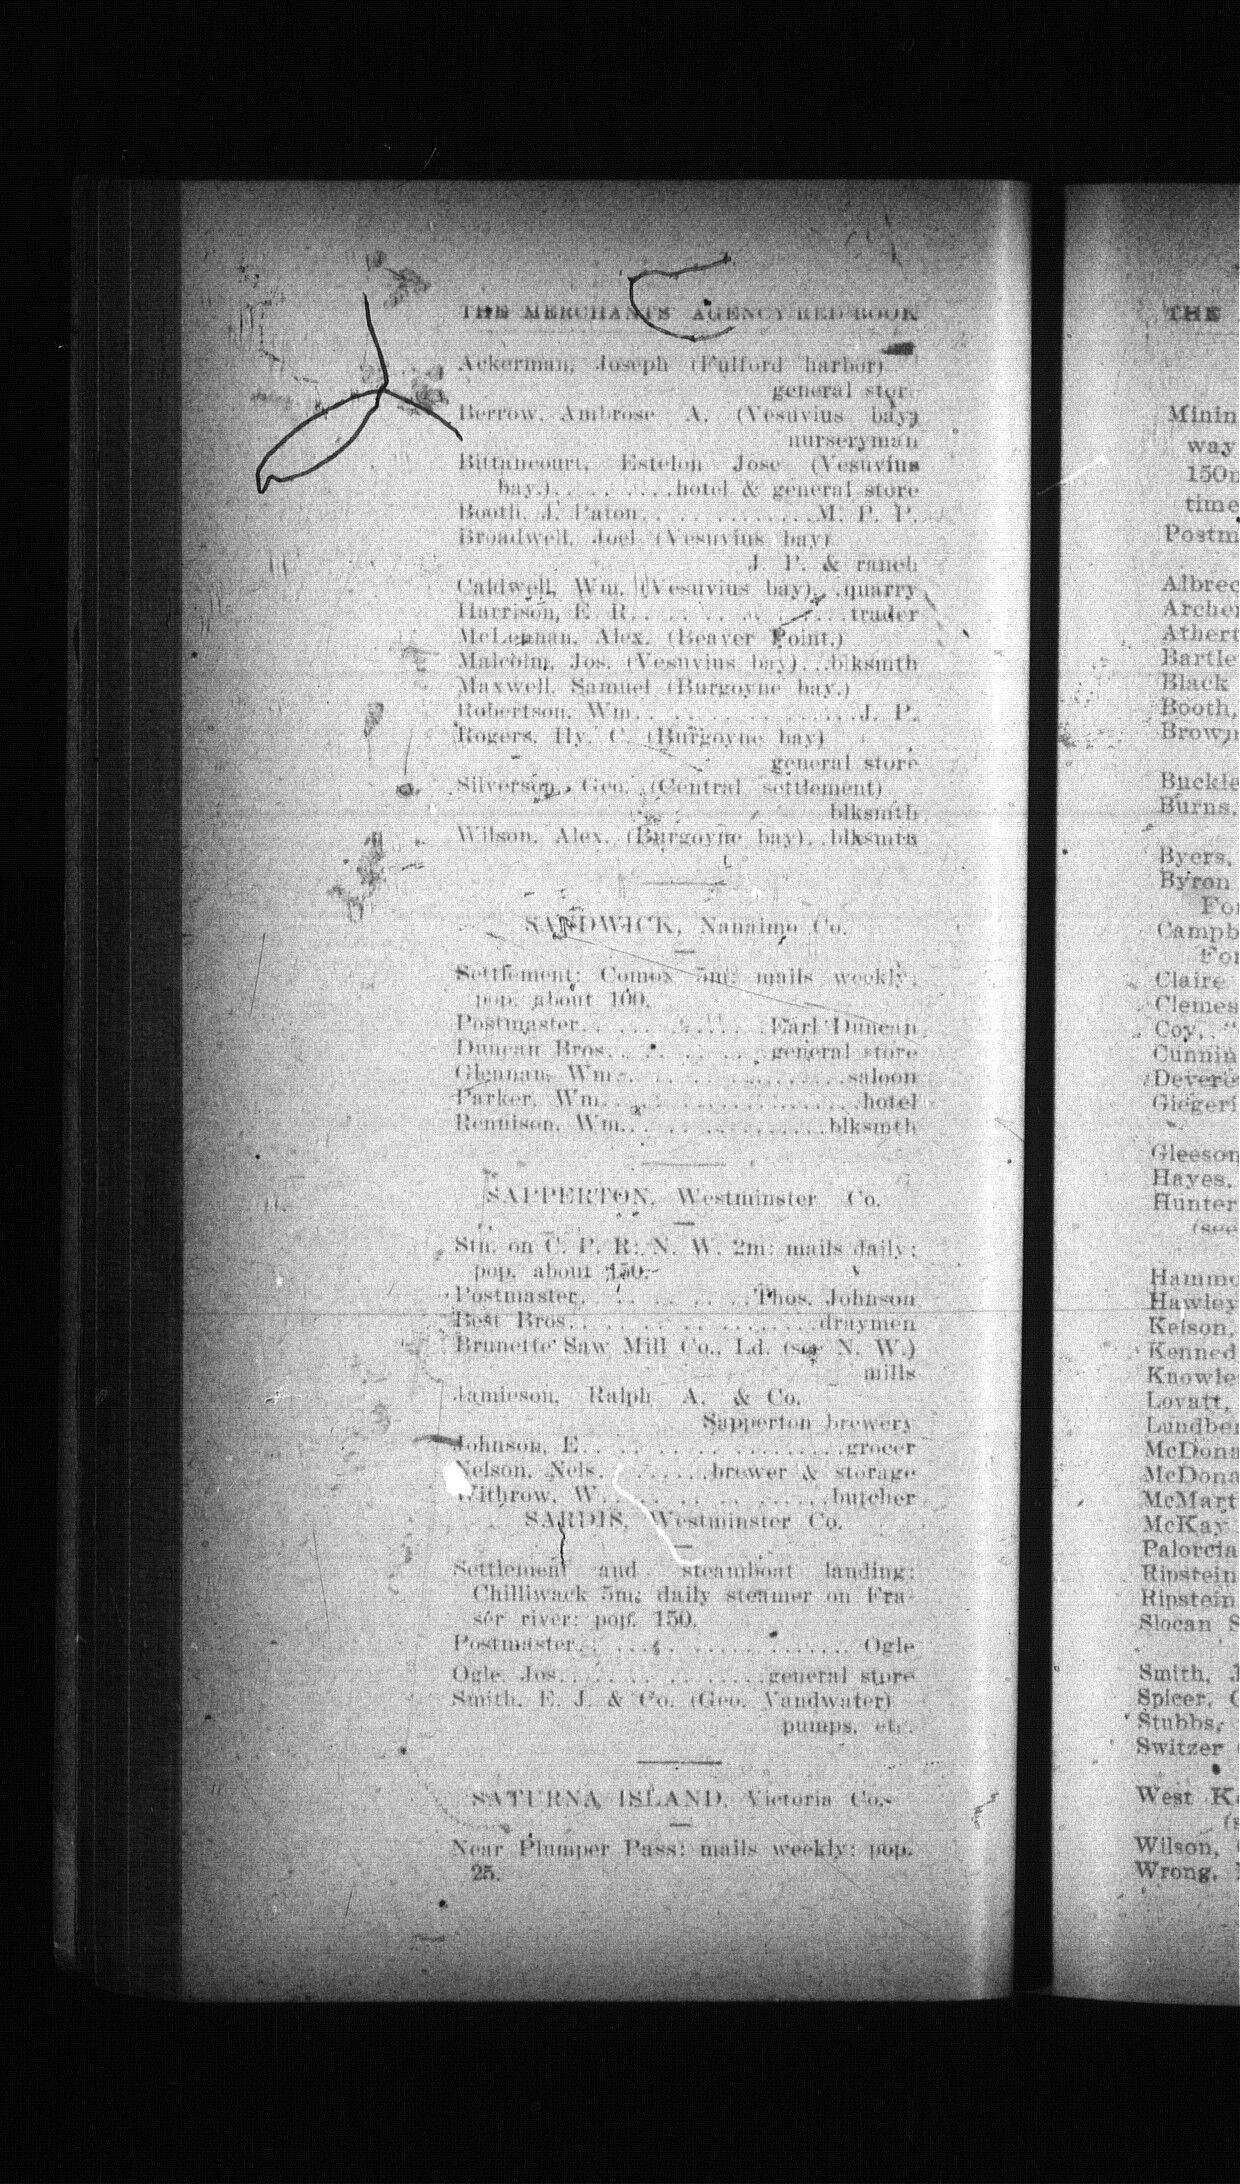 THE MERCHANTS AGENCY RED BOOK
Ackerman, Joseph (Fulford harbor)
general stor.
Berrow, Ambrose A. (Vesuvius bay)
nurseryman
Bittancourt, Estelon Jose (Vesuvius
bay.)..........hotel & general store
Booth, J. Paton..............M. P. P.
Broadwell, Joel (Vesuvius bay)
J. P. & ranch
Caldwell, Wm. (Vesuvius bay)..quarry
Harrison, E. R................trader
McLennan, Alex. (Beaver Point.)
Malcolm, Jos. (Vesuvius bay)...blksmth
Maxwell, Samuel (Burgoyne bay.)
Robertson, Wm................J. P.
Rogers, Hy. C. (Burgoyne bay)
general store
Silverson, Geo. (Central settlement)
blksmth
Wilson, Alex. (Burgoyne bay)..blksmth
SANDWICK, Nanaimo Co.
Settlement; Comox 5m; mails weekly;
pop. about 100.
Postmaster..............Earl Duncan
Duncan Bros............general store
Glennan, Wm..................saloon
Parker, Wm....................hotel
Rennison, Wm................blksmth
SAPPERTON, Westminster Co.
Stn. on C. P. R; N. W. 2m; mails daily;
pop. about 150.
Postmaster.............Thos. Johnson
Best Bros...................draymen
Brunette Saw Mill Co., Ld. (see N. W.)
mills
Jamieson, Ralph A. & Co.
Sapperton brewery
Johnson, E....................grocer
Nelson, Nels.........brewer & storage
Withrow, W..................butcher
SARDIS, Westminster Co.
Settlement and steamboat landing;
Chilliwack 5m; daily steamer on Fra-
ser river; pop. 150.
Postmaster.................... Ogle
Ogle, Jos...............general store
Smith, E. J. & Co. (Geo. Vandwater)
pumps, etc.
SATURNA ISLAND, Victoria Co.
Near Plumper Pass; mails weekly; pop.
25.
THE
Minin
way
150m
time
Postm
Albrec
Archer
Athert
Bartle
Black
Booth,
Brown
Buckle
Burns,
Byers,
Byron
For
Campb
For
Claire
Clemes
Coy, "
Cunnin
Devere
Giegeri
Gleeson
Hayes,
Hunter
(see
Hammo
Hawley
Kelson,
Kenned
Knowle
Lovatt,
Lundber
McDona
McDona
McMart
McKay
Palorcia
Ripstein
Ripstein
Slocan S
Smith, J
Spicer, C
Stubbs,
Switzer
West Ko
(s
Wilson,
Wrong,